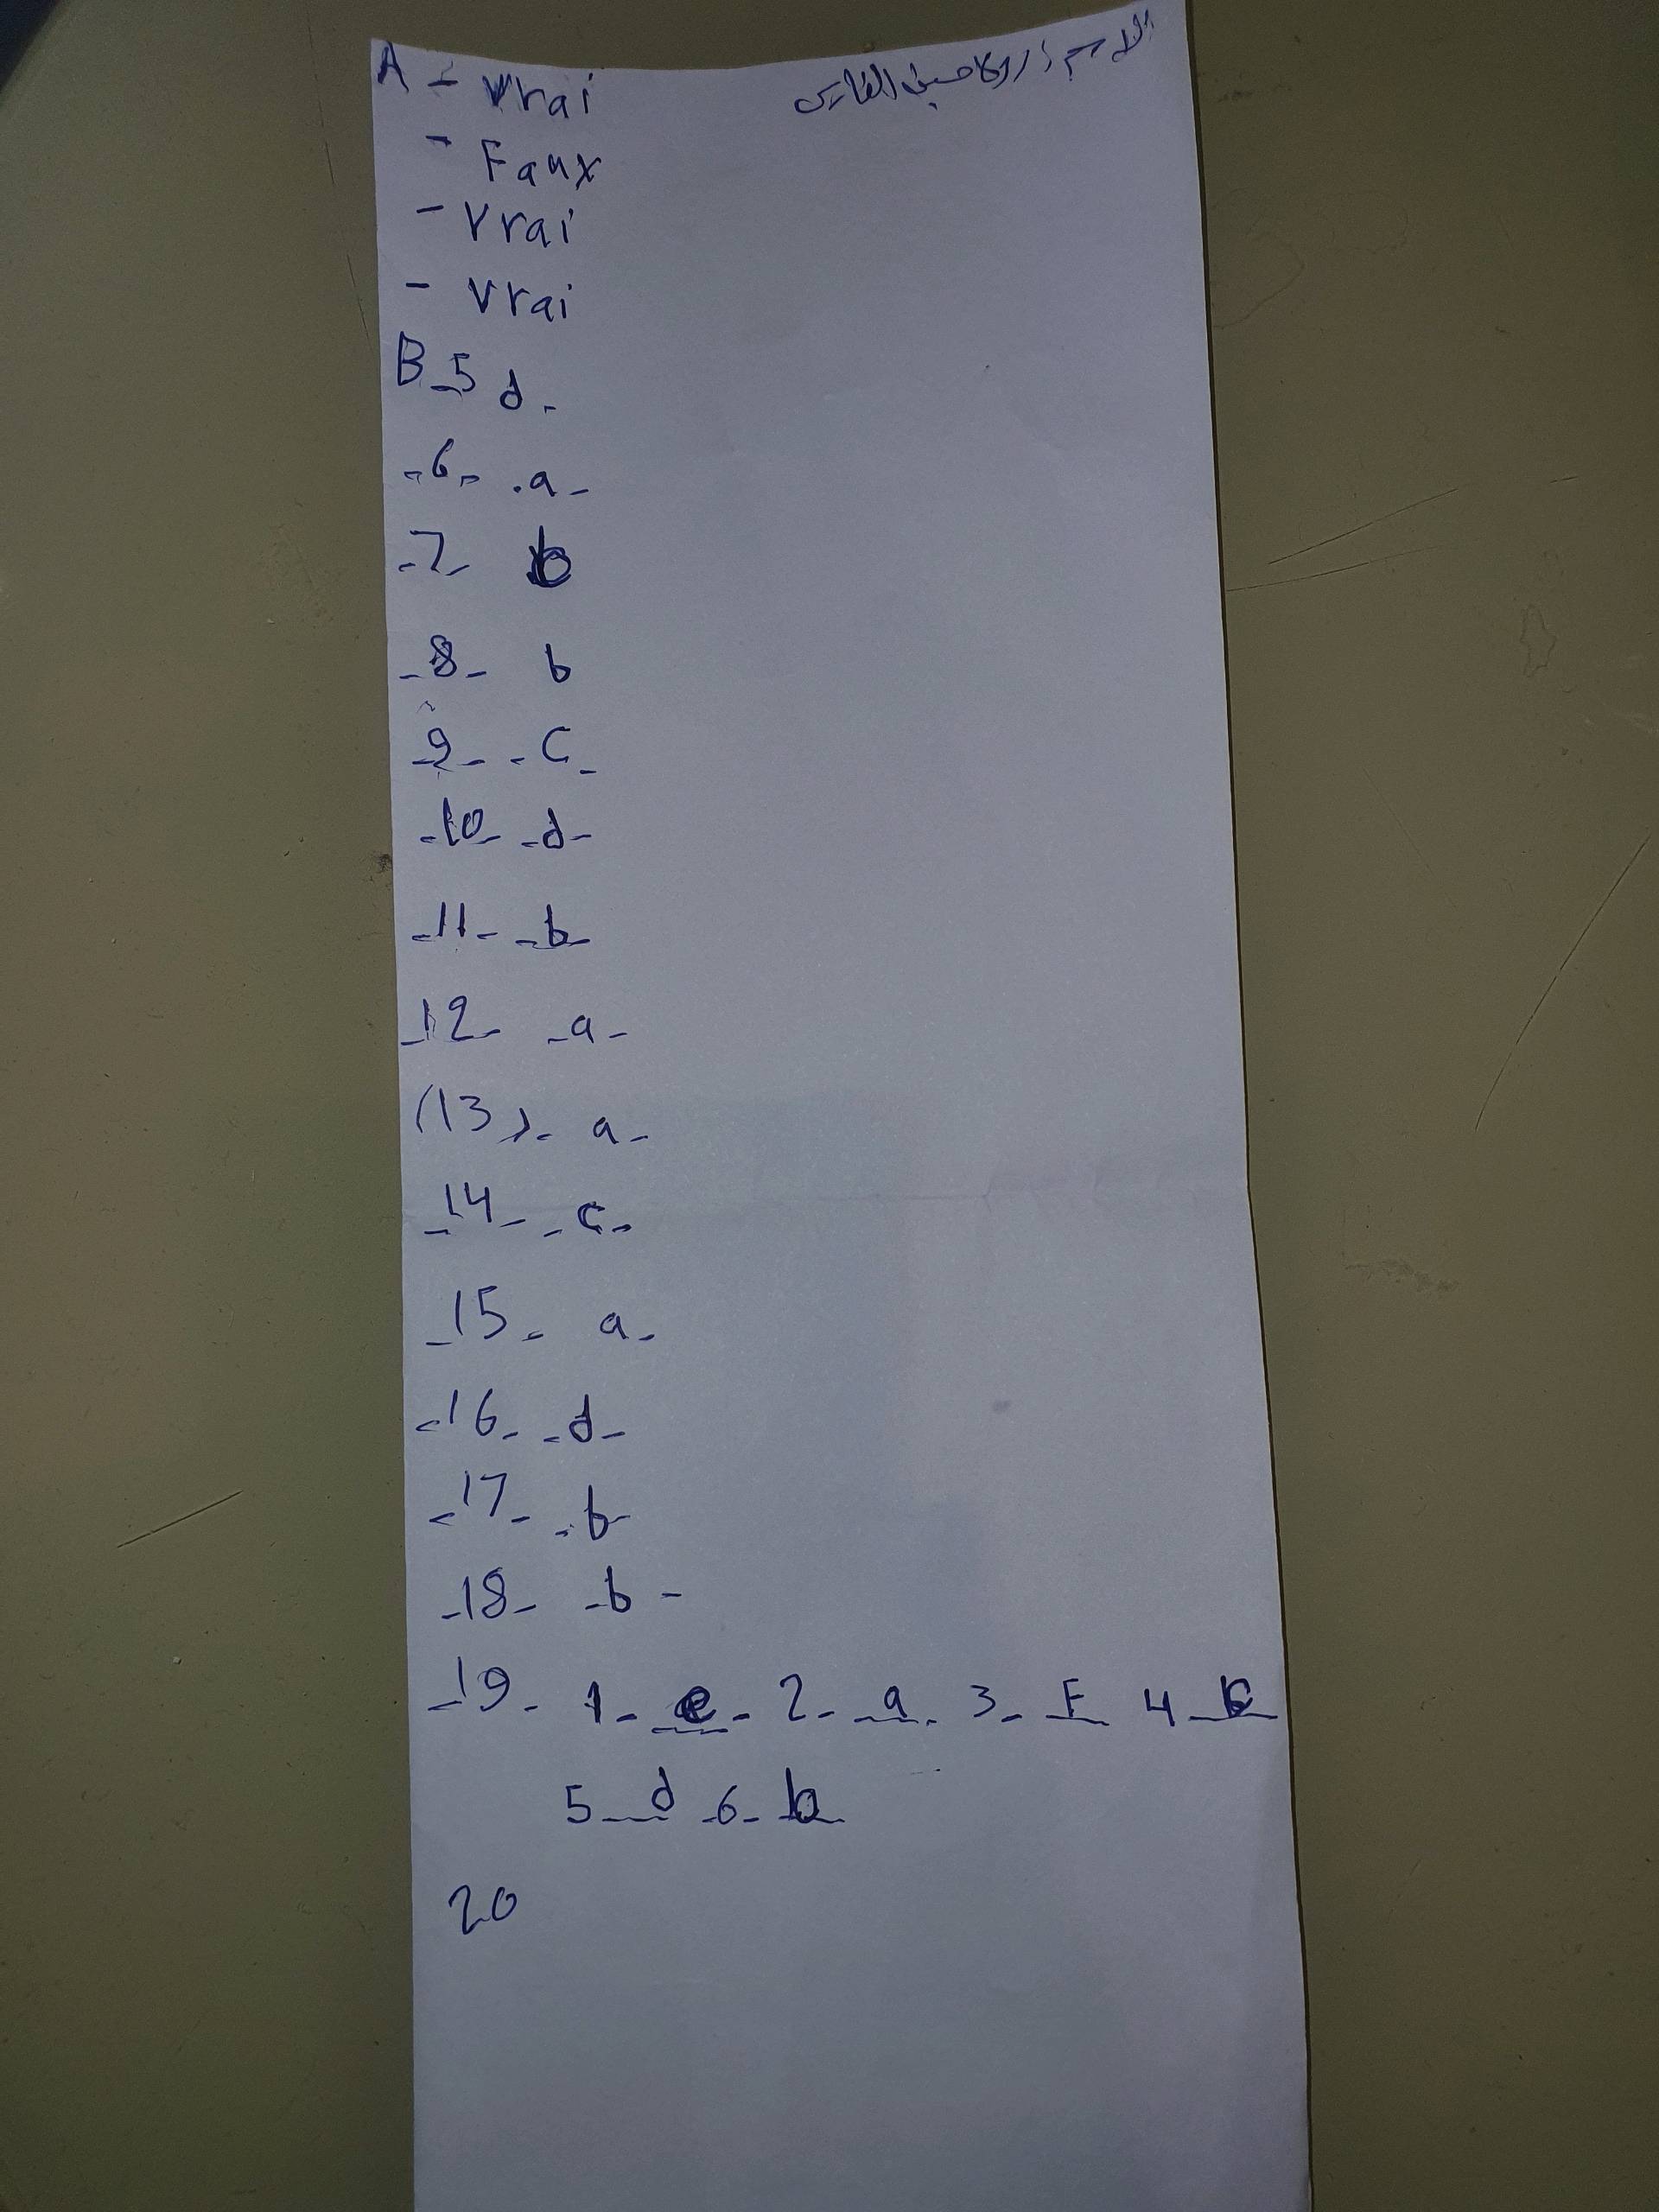 الاسم: رولا حسين الفارس
A - Vrai
- Faux
- Vrai
- Vrai
B - 5 d -
- 6 - . a -
- 7 - b
- 8 - b
- 9 - - c -
- 10 - - d -
- 11 - - b -
- 12 - - a -
(13) - a -
- 14 - - c -
- 15 - a -
- 16 - - d -
- 17 - - b -
- 18 - - b -
- 19 - 1 - e - 2 - a - 3 - F 4 c
5 - d - 6 - b
20